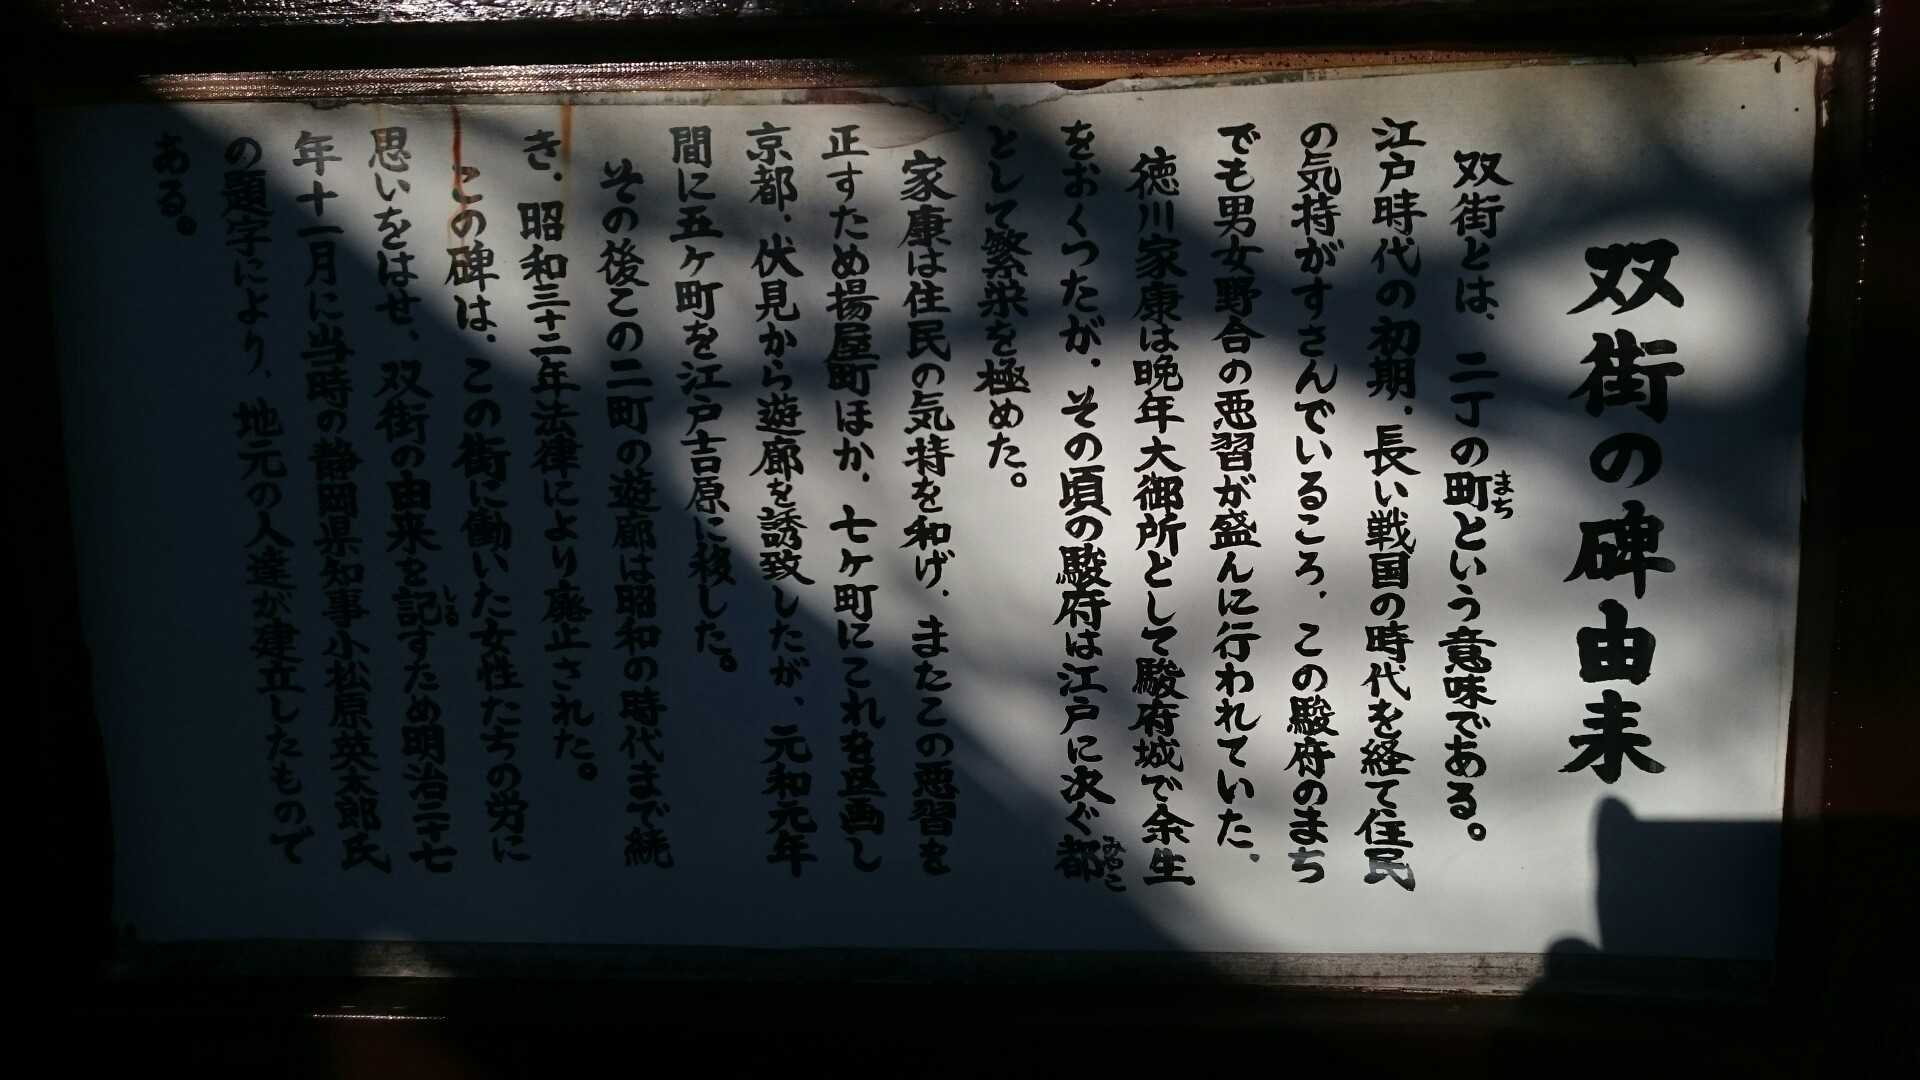 双街の碑由来
双街とは、二丁の町という意味である。
まち
江戸時代の初期、長い戦国の時代を経て住民
の気持がすさんでいるころ、この駿府のまち
でも男女野合の悪習が盛んに行われていた、
徳川家康は晩年大御所として駿府城で余生
をおくつたが、その頃の駿府は江戸に次ぐ都
みやこ
として繁栄を極めた。
家康は住民の気持を和げ、またこの悪習を
正すため揚屋町ほか、七ヶ町にこれを区画し
京都、伏見から遊廊を誘致したが、元和元年
間に五ヶ町を江戸吉原に移した。
その後この二町の遊廊は昭和の時代まで続
き、昭和三十二年法律により廃止された。
この碑は、この街に働いた女性たちの労に
思いをはせ、双街の由来を記すため明治二十七
しる
年十一月に当時の静岡県知事小松原英太郎氏
の題字により、地元の人達が建立したもので
ある。